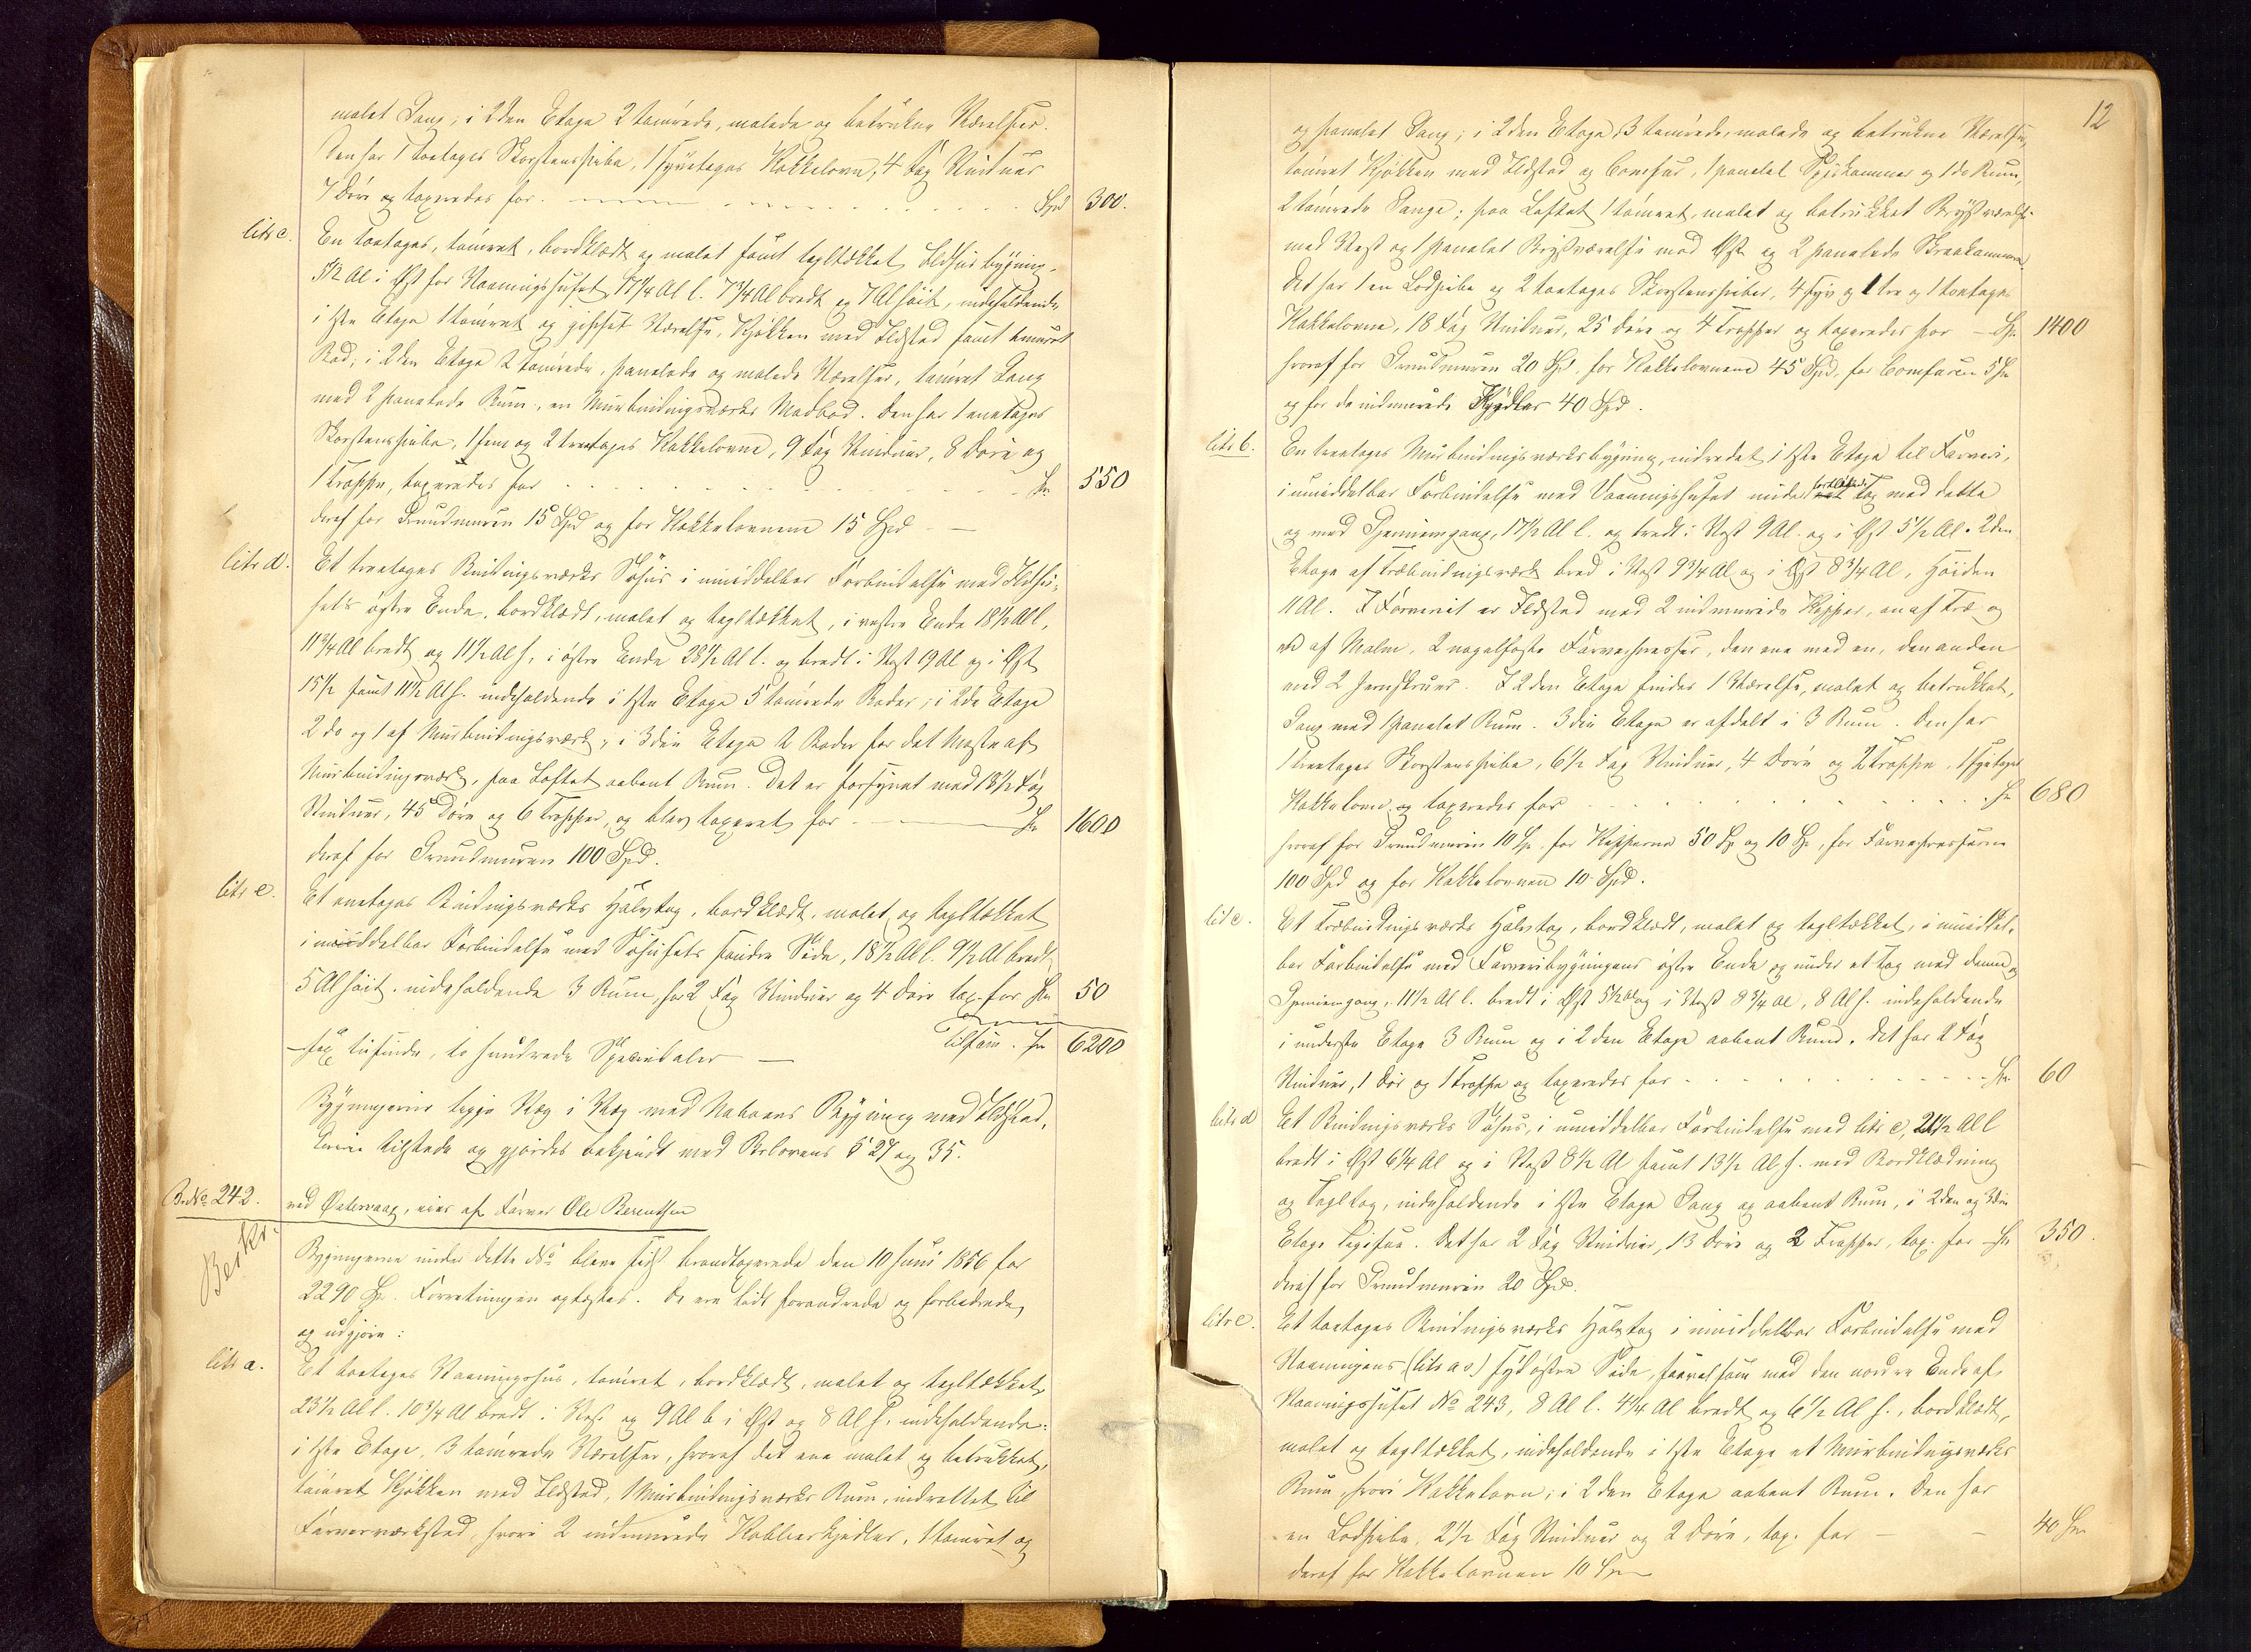 malet Gang; i 2den Etage 2 tømrede, malede og betrukne Værelser.
Den har 1 toetages Skorstenspibe, 1 fyretages Kakkelovn, 4 Fag Vinduer
7 Døre og taxeredes for Spd 300.
litr c. En toetages, tømret, bordklædt og malet samt tegltækket Ildhusbygning,
5½ Al i Øst for Vaaningshuset, 17¼ Al l. 7¾ Al bredt og 7 Al høit, indeholdende
i 1ste Etage 1 tømret og gipset Værelse, Kjøkken med Ildsted samt tømret
Bod; i 2den Etage 2 tømrede, panelede og malede Værelser, tømret Gang
med 2 panelede Rum, en Murbindingsværks Madbod. Den har 1 enetages
Skorstenspibe, 1 fem og 2 treetages Kakkelovne, 9 Fag Vinduer, 8 Døre og
1 Trappe, taxeredes for Sp. 550
deraf for Grundmuren 15 Spd og for Kakkelovnene 15 Spd
litr d. Et treetages Bindingsværks Søhus i umiddelbar Forbindelse med Ildhu-
sets østre Ende, bordklædt, malet og tegltækket, i vestre Ende 18½ Al l.
11¾ Al bredt og 11½ Al h., i østre Ende 28½ Al l. og bredt i Vest 19 Al og i Øst
15½ samt 11½ Al h. indeholdende i 1ste Etage 5 tømrede Boder; i 2de Etage
2 do og 1 af Murbindingsværk; i 3die Etage 2 Boder for det Meste af
Murbindingsværk, paa Loftet aabent Rum. Det er forsynet med 18½ Fag
Vinduer, 45 Døre og 6 Trapper, og blev taxeret for Sp. 1600
deraf for Grundmuren 100 Spd.
litr e. Et enetages Bindingsværks Halvtag, bordklædt, malet og tegltækket
i umiddelbar Forbindelse med Søhusets søndre Side, 18½ Al l. 9½ Al bredt
5 Al høit, indeholdende 3 Rum, har 2 Fag Vinduer og 4 Døre tax. for Sp. 50
Tilsam. Sp. 6200
– sex tusinde, to hundrede Speciedaler –
Bygningerne ligge Væg i Væg med Naboens Bygning med Ildsted.
Eieren tilstede og gjordes bekjendt med Brlovens § 27 og 35.
BrNo 242. ved Østervaag, eies af Farver Ole Berentsen
Beskr. Bygningerne under dette No bleve sidst brandtaxerede den 10 Juni 1856 for
2290 Sp. Forretningen oplæstes. De ere tildels forandrede og forbedrede,
og udgjøre:
litr a. Et toetages Vaaningshus, tømret, bordklædt, malet og tegltækket,
23½ Al l. 10¾ Al bredt i Vest og 9 Al b i Øst og 8 Al h. indeholdende:
i 1ste Etage, 3 tømrede Værelser, hvoraf det ene malet og betrukket,
tømret Kjøkken med Ildsted, 1 Murbindingsværks Rum, indrettet til
Farverværksted, hvori 2 indmurede Kobberkjedler, 1 tømret og
12
og panelet Gang; i 2den Etage, 3 tømrede, malede og betrukne Værelser,
tømret Kjøkken med Ildsted og Comfur, 1 panelet Spiskammer og 1 do Rum,
2 tømrede Gange; paa Loftet 1 tømret, malet og betrukket Brystværelse
mod Vest og 1 panelet Brystværelse mod Øst og 2 panelede Skraakammere.
Det har 1 en Lodpibe og 2 toetages Skorstenspiber, 4 fyr og 1 tre og 1 toetages
Kakkelovne, 18 Fag Vinduer, 25 Døre og 4 Trapper og taxeredes for Sp. 1400
hvoraf for Grundmuren 20 Spd, for Kakkelovnene 45 Spd, for Comfuren 5 Sp
og for de indmurede Kjedler 40 Spd.
litr b. En treetages Murbindingsværksbygning, indredet i 1ste Etage til Farveri,
i umiddelbar Forbindelse med Vaaningshuset under fortløbende Tag med dette
og med Gjennemgang, 17½ Al l. og bredt i Vest 9 Al. og i Øst 5½ Al. 2den
Etage af Træbindingsværk bred i Vest 9¾ Al og i Øst 8¾ Al, Høiden
11 Al. I Farveriet er Ildsted med 2 indmurede Kipper, en af Træ og
en af Malm, 2 nagelfaste Farvepresser, den ene med en, den anden
med 2 Jernskruer. I 2den Etage findes 1 Værelse, malet og betrukket,
Gang med 1 panelet Rum. 3die Etage er afdelt i 3 Rum. Den har
1 treetages Skorstenspibe, 6½ Fag Vinduer, 4 Døre og 2 Trapper, 1 fyretages
Kakkelovn og taxeredes for Sp 680
hvoraf for Grundmuren 10 Sp. for Kipperne 50 Sp og 10 Sp, for Farvepresserne
100 Spd og for Kakkelovnen 10 Spd.
lit c. Et Træbindingsværks Halvtag, bordklædt, malet og tegltækket, i umiddel-
bar Forbindelse med Farveribygningens østre Ende og under et Tag med denne og
Gjennemgang, 11½ Al l. bredt i Øst 5½ Al og i Vest 8¾ Al, 8 Al h. indeholdende
i underste Etage 3 Rum og i 2den Etage aabent Rum. Det har 2 Fag
Vinduer, 1 Dør og 1 Trappe og taxeredes for Sp. 60
litr d Et Bindingsværks Søhus, i umiddelbar Forbindelse med litr c, 21½ Al l
bredt i Øst 6¼ Al og i Vest 8½ Al samt 13½ Al h. med Bordklædning
og Tegltag, indeholdende i 1ste Etage Gang og aabent Rum, i 2den og 3die
Etage ligesaa. Det har 2 Fag Vinduer, 13 Døre og 2 Trapper, tax. for Sp 350.
deraf for Grundmuren 20 Spd.
litr e. Et toetages Bindingsværks Halvtag i umiddelbar Forbindelse med
Vaaningens (litr a) sydøstre Side, saavelsom med den nordre Ende af
Vaaningshuset No 243, 8 Al l. 4¼ Al bredt og 6½ Al h., bordklædt,
malet og tegltækket, indeholdende i 1ste Etage et Murbindingsværks
Rum, hvori Kakkelovn; i 2den Etage aabent Rum. Den har
en Lodpibe, 2½ Fag Vinduer og 2 Døre, tax. for 40 Sp
deraf for Kakkelovnen 10 Sp